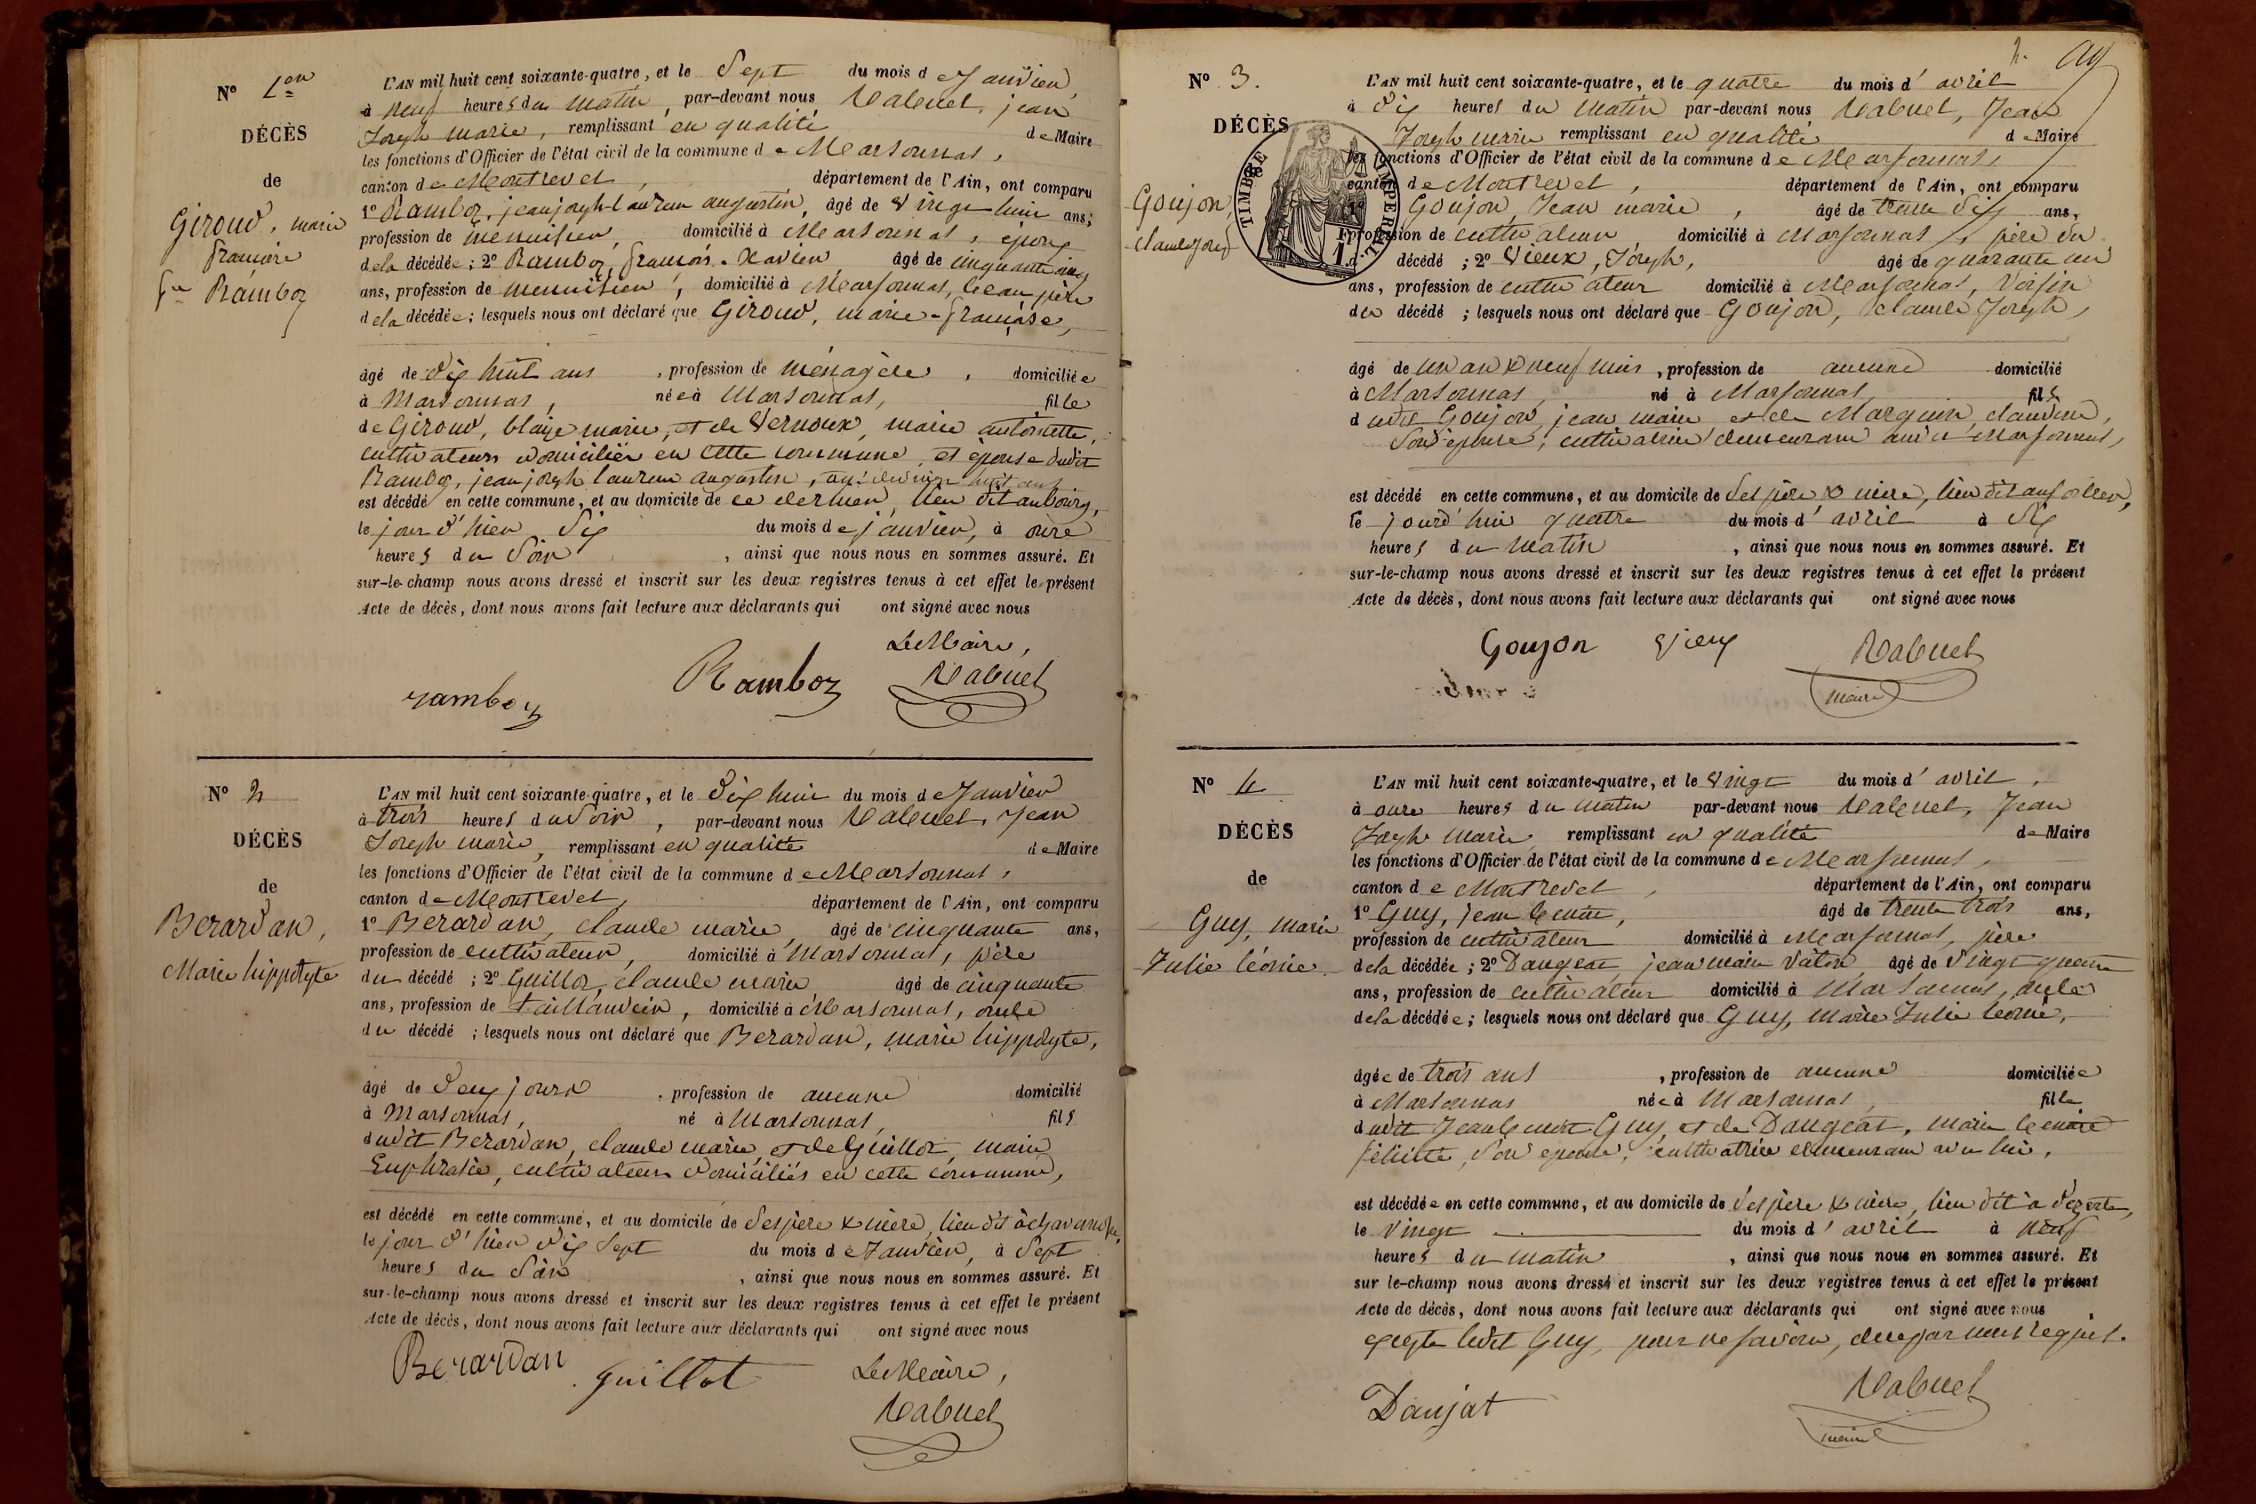 N° 1er
DÉCÈS
de
Giroud, marie
françoise
fme Ramboz
L'AN mil huit cent soixante-quatre, et le Sept du mois de Janvier,
à neuf heures du matin, par-devant nous Rabuel, jean
Joseph marie, remplissant en qualité de Maire
les fonctions d'Officier de l'état civil de la commune de Marsonnas,
canton de Montrevel, département de l'Ain, ont comparu
1° Ramboz, jean joseph laurent augustin, âgé de Vingt huit ans;
profession de menuisier, domicilié à Marsonnas, époux
de la décédée; 2° Ramboz, françois-Xavier âgé de cinquante
ans, profession de menuisier, domicilié à Marsonnas, beau père
de la décédée; lesquels nous ont déclaré que Giroud, marie-françoise,
âgé de dix huit ans, profession de ménagère, domiciliée
à Marsonnas, née à Marsonnas, fille
de Giroud, blaize marie, et de Vernoux, marie antoinette,
cultivateurs domiciliés en cette commune, et épouse dudit
Ramboz, jean joseph laurent augustin,
est décédé en cette commune, et au domicile de ce dernier, lieu dit au bourg,
le jour d'hier Six du mois de janvier, à onze
heures du Soir, ainsi que nous nous en sommes assuré. Et
sur-le-champ nous avons dressé et inscrit sur les deux registres tenus à cet effet le présent
Acte de décès, dont nous avons fait lecture aux déclarants qui ont signé avec nous
Le Maire,
ramboz Ramboz Rabuel
N° 2
DÉCÈS
de
Berardan,
Marie hippolyte
L'AN mil huit cent soixante-quatre, et le Dix huit du mois de Janvier
à trois heures du Soir, par-devant nous Rabuel, Jean
Joseph marie, remplissant en qualité de Maire
les fonctions d'Officier de l'état civil de la commune de Marsonnas,
canton de Montrevel, département de l'Ain, ont comparu
1° Berardan, claude marie, âgé de cinquante ans,
profession de cultivateur, domicilié à Marsonnas, père
du décédé; 2° Guillot, claude marie, âgé de cinquante
ans, profession de taillandier, domicilié à Marsonnas, oncle
du décédé; lesquels nous ont déclaré que Berardan, marie hippolyte,
âgé de Deux jours, profession de aucune domicilié
à Marsonnas, né à Marsonnas, fils
dudit Berardan, claude marie, et de Guillot, marie
Euphrasie, cultivateurs domiciliés en cette commune,
est décédé en cette commune, et au domicile de Ses père & mère, lieu dit à
le jour d'hier dix Sept du mois de Janvier, à Sept
heures du Soir, ainsi que nous nous en sommes assuré. Et
sur-le-champ nous avons dressé et inscrit sur les deux registres tenus à cet effet le présent
Acte de décès, dont nous avons fait lecture aux déclarants qui ont signé avec nous
Berardan Guillot Le Maire,
Rabuel
2.
N° 3.
DÉCÈS
TIMBRE IMPERIAL
Goujon,
claude Joseph
L'AN mil huit cent soixante-quatre, et le quatre du mois d'avril
à Dix heures du Matin par-devant nous Rabuel, Jean
Joseph marie remplissant en qualité de Maire
les fonctions d'Officier de l'état civil de la commune de Marsonnas,
canton de Montrevel, département de l'Ain, ont comparu
1° Goujon, Jean marie, âgé de trente Six ans,
profession de cultivateur domicilié à Marsonnas, père du
décédé; 2° Vieux, Joseph, âgé de quarante un
ans, profession de cultivateur domicilié à Marsonnas, Voisin
du décédé; lesquels nous ont déclaré que Goujon, claude Joseph,
âgé de un an & neuf mois, profession de aucune domicilié
à Marsonnas, né à Marsonnas, fils
dudit Goujon, jean marie et de Marguin, claudine,
Son épouse, cultivatrice demeurant avec lui à Marsonnas,
est décédé en cette commune, et au domicile de Ses père & mère, lieu dit
le jourd'hui quatre du mois d'avril à Six
heures du Matin, ainsi que nous nous en sommes assuré. Et
sur-le-champ nous avons dressé et inscrit sur les deux registres tenus à cet effet le présent
Acte de décès, dont nous avons fait lecture aux déclarants qui ont signé avec nous
Goujon Vieux Rabuel
maire
N° 4
DÉCÈS
de
Guy, marie
Julie léonie
L'AN mil huit cent soixante-quatre, et le Vingt du mois d'avril,
à onze heures du matin par-devant nous Rabuel, Jean
Joseph marie, remplissant en qualité de Maire
les fonctions d'Officier de l'état civil de la commune de Marsonnas,
canton de Montrevel, département de l'Ain, ont comparu
1° Guy, jean benoit, âgé de trente trois ans,
profession de cultivateur domicilié à Marsonnas, père
de la décédée; 2° Daugeat, jean marie Victor, âgé de Vingt quatre
ans, profession de cultivateur domicilié à Marsonnas, oncle
de la décédée; lesquels nous ont déclaré que Guy, marie Julie leonie,
âgée de trois ans, profession de aucune domiciliée
à Marsonnas née à Marsonnas, fille
dudit Jean benoit Guy, et de Daugeat, marie benoite
félicité, Son épouse, cultivatrice demeurant avec lui,
est décédée en cette commune, et au domicile de Ses père & mère, lieu dit à
le Vingt du mois d'avril à neuf
heures du matin, ainsi que nous nous en sommes assuré. Et
sur le-champ nous avons dressé et inscrit sur les deux registres tenus à cet effet le présent
Acte de décès, dont nous avons fait lecture aux déclarants qui ont signé avec nous
excepté ledit Guy, pour ne savoir, de ce par nous requis.
Danjat Rabuel
maire